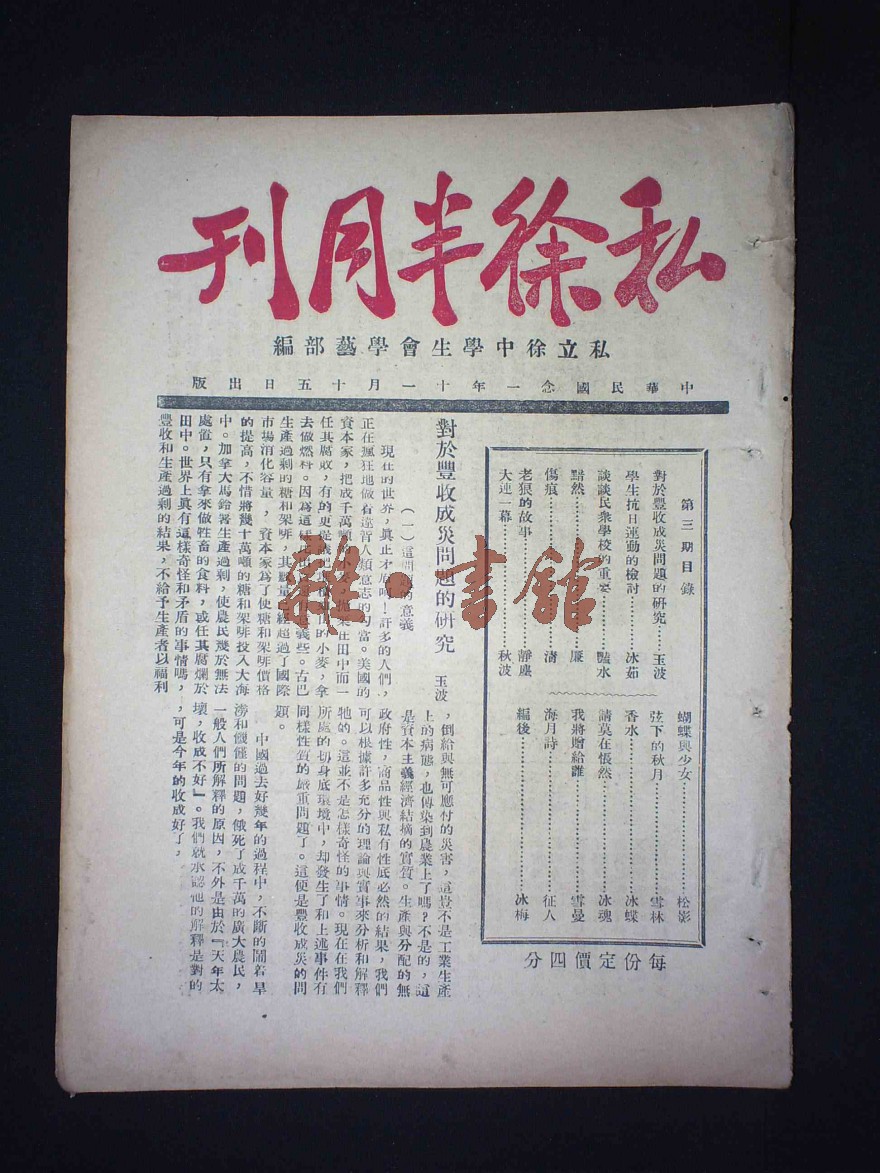 私徐半月刊
私立徐中學生會學藝部編
中華民國念一年十一月十五日出版
第三期目錄
對於豐收成災問題的研究……玉波
學生抗日運動的檢討……冰茹
談談民衆學校的重要……豔水
黯然……厭
傷痕……濤
老狼的故事……靜塵
大連一幕……秋波
蝴蝶與少女……松影
弦下的秋月……雪林
香水……冰蝶
請莫在悵然……冰魂
我將贈給誰……雪曼
海月詩……征人
編後……冰梅
每份定價四分
對於豐收成災問題的研究　玉波
（一）這　的意義
現在的世界，眞正矛盾呵！許多的人們，
正在瘋狂地做着違背人類意志的勾當。美國的
資本家，把成千萬噸的小麥，拋棄在田中而一
任其腐敗，有的更從農　的小麥，拿
去做燃料。因爲這　義些。古巴
生產過剩的糖和架啡，其數量已經超過了國際
市場消化容量，資本家爲了使糖和架啡價格
的提高，不惜將幾十萬噸的糖和架啡投入大海
中。加拿大馬鈴薯生產過剩，使農民幾於無法
處置，只有拿來做牲畜的食料，或任其腐爛於
田中。世界上眞有這樣奇怪和矛盾的事情嗎，
豐收和生產過剩的結果，不給予生產者以福利
，倒給與無可應付的災害，這豈不是工業生產
上的病態，也傳染到農業上了嗎？不是的，這
是資本主義經濟結構的實質。生產與分配的無
政府性，商品性與私有性底必然的結果，我們
可以根據許多充分的理論與實事來分析和解釋
牠的。這並不是怎樣奇怪的事情。現在在我們
所處的切身底環境中，却發生了和上述事件有
同樣性質的嚴重問題了。這便是豐收成災的問
題。
中國過去好幾年的過程中，不斷的鬧着旱
澇和饑饉的問題，餓死了成千萬的廣大農民，
一般人們所解釋的原因，不外是由於『天年太
壞，收成不好』。我們就承認他的解釋是對的
，可是今年的收成好了，
雜·書館